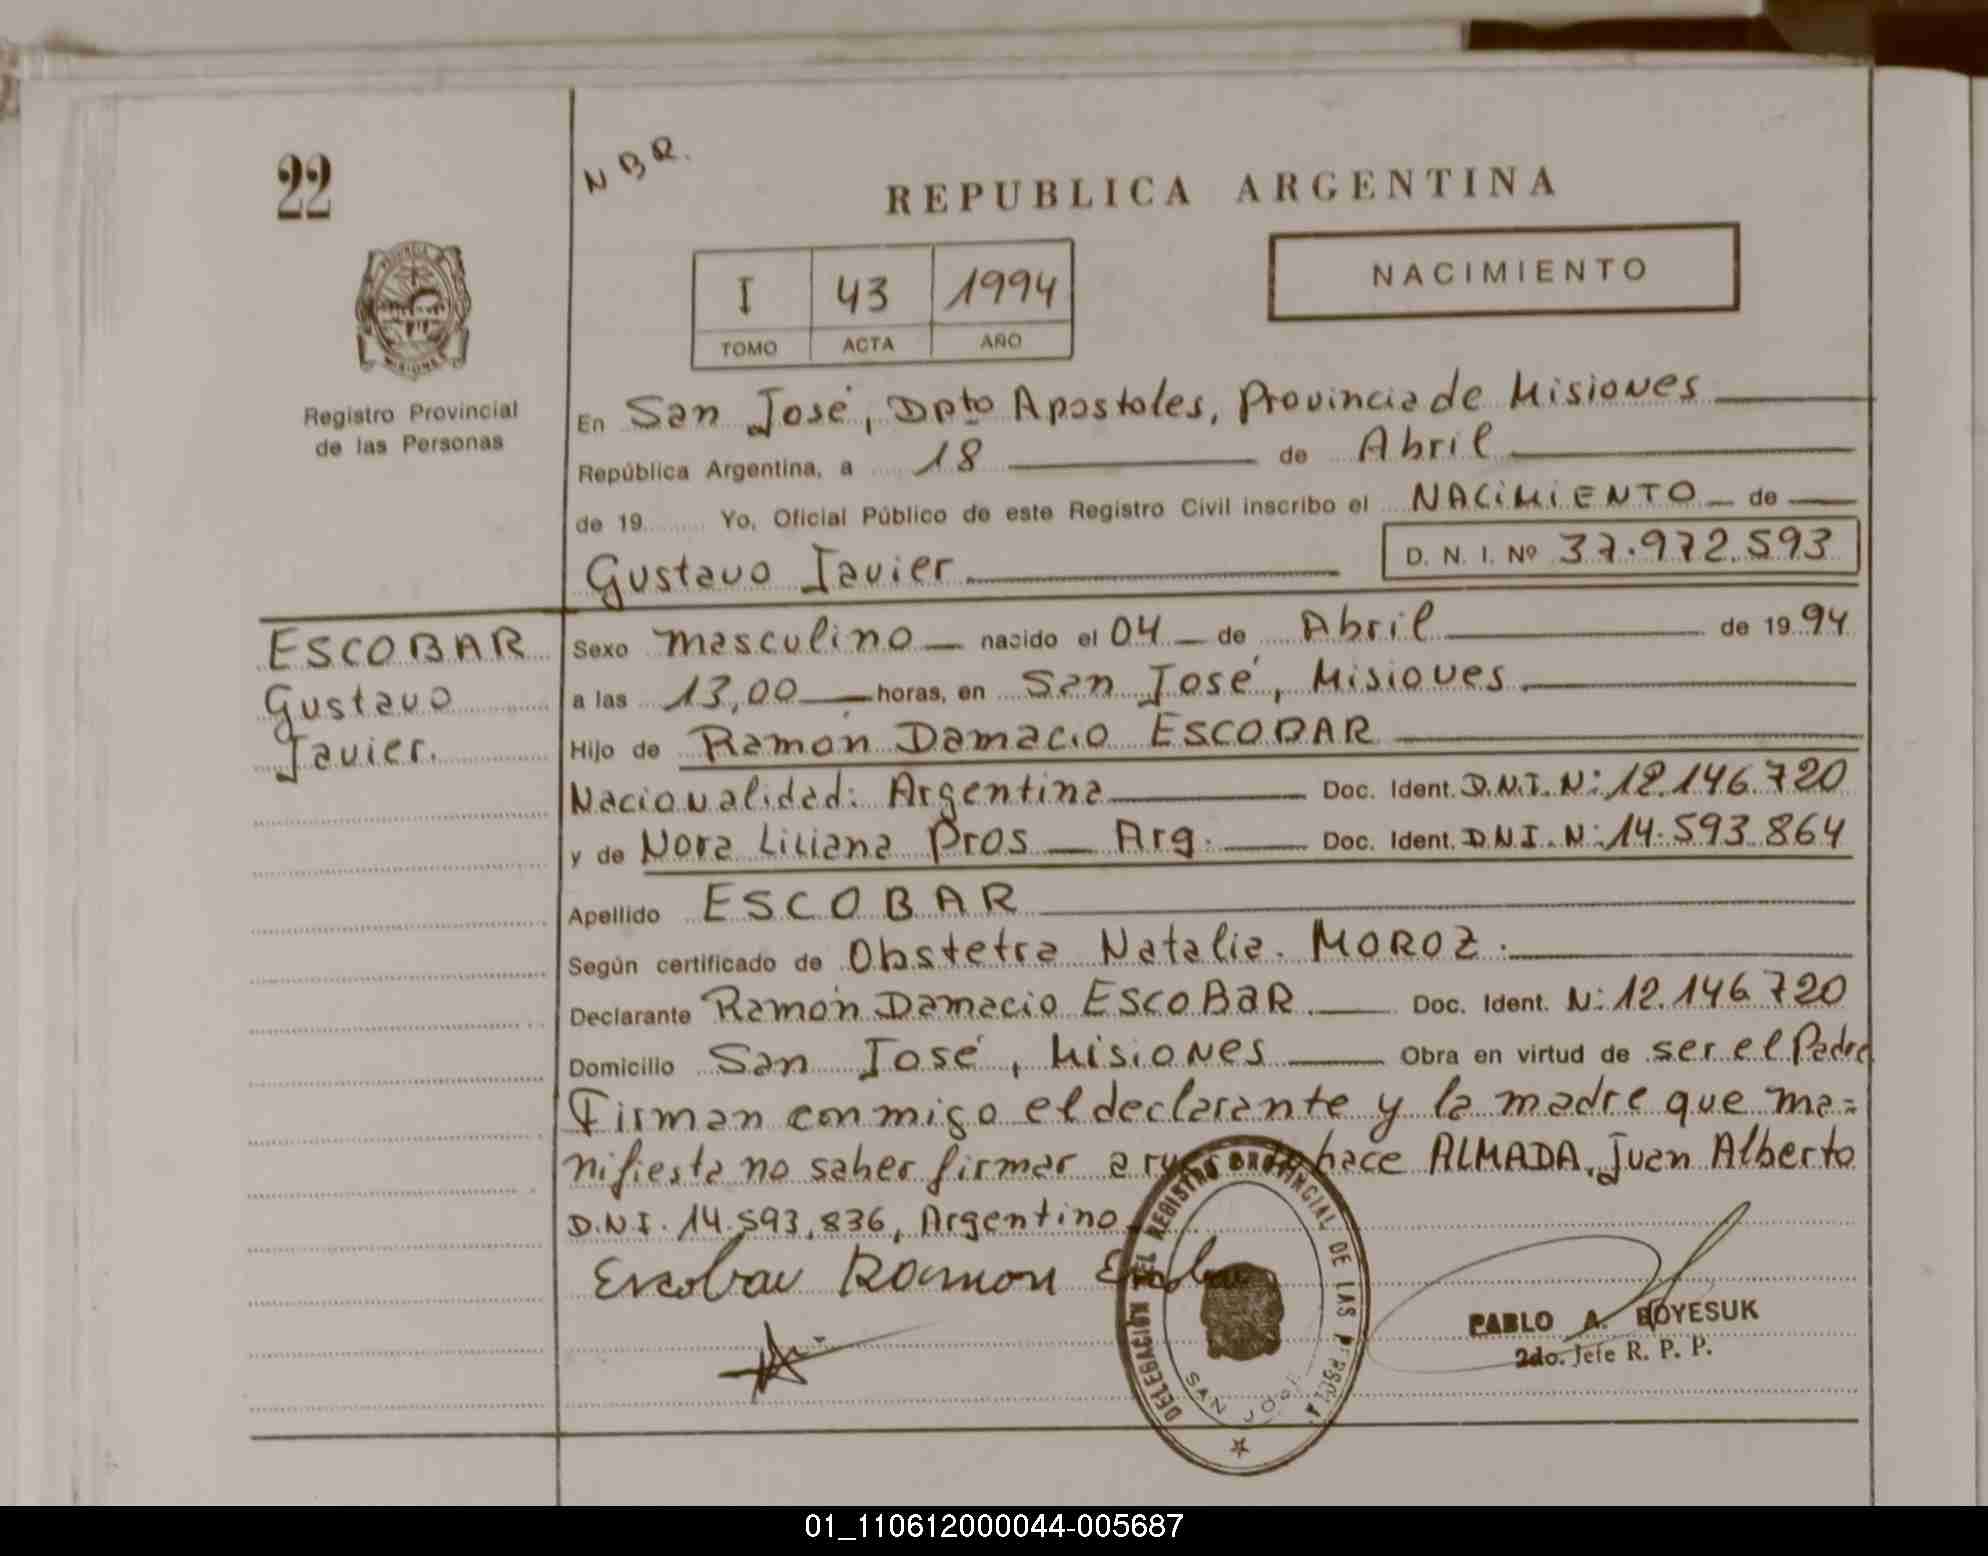 22
N B R.
REPUBLICA ARGENTINA
NACIMIENTO
I 43 1994
TOMO ACTA AÑO
Registro Provincial
de las Personas
En San José, Dpto Apostoles, Provincia de Misiones
República Argentina, a 18 de Abril
de 19 Yo, Oficial Público de este Registro Civil inscribo el NACIMIENTO de
Gustavo Javier D. N. I. Nº 37.972.593
ESCOBAR
Gustavo
Javier.
Sexo masculino nacido el 04 de Abril de 19 94
a las 13,00 horas, en San José, Misiones
Hijo de Ramón Damacio ESCOBAR
Nacionalidad: Argentina Doc. Ident. D.N.I. N: 12.146.720
y de Nora Liliana Pros Arg. Doc. Ident. D.N.I. N: 14.593.864
Apellido ESCOBAR
Según certificado de Obstetra Natalia. MOROZ.
Declarante Ramón Damacio ESCOBAR Doc. Ident. N: 12.146.720
Domicilio San José, Misiones Obra en virtud de ser el Padre
Firman conmigo el declarante y la madre que ma=
nifiesta no saber firmar a hace ALMADA, Juan Alberto
D.N.I. 14.593.836, Argentino
Escobar Ramon
DELEGACIÓN DEL REGISTRO PROVINCIAL DE LAS PERSONAS
SAN JOSE
PABLO A. BOYESUK
2do. Jefe R. P. P.
01_110612000044-005687